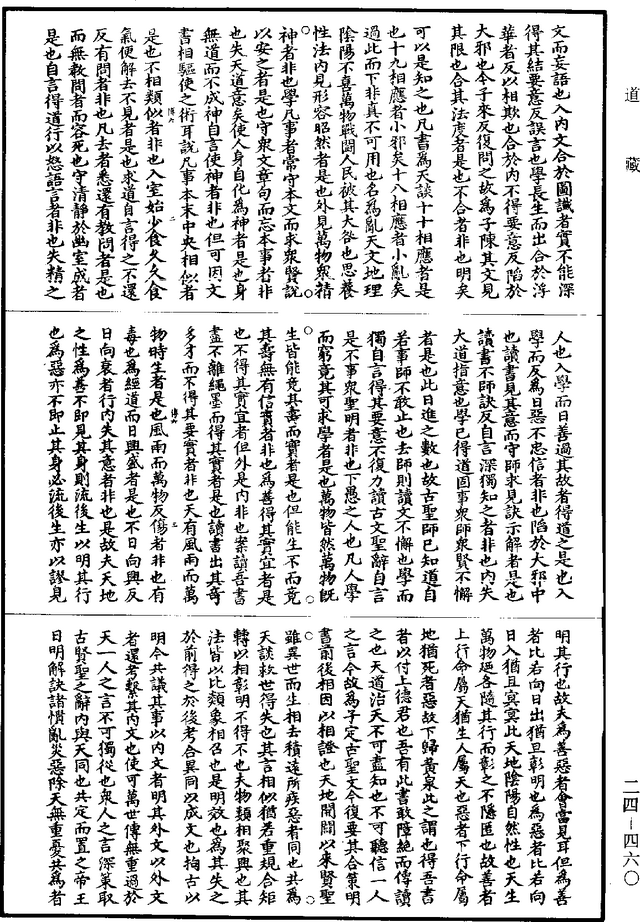 道藏
文而妄語也入內文合於圖讖者實不能深
得其結要意反誤言也學長生而出合於浮
華者反以相欺也合於內不得要意反陷於
大邪也今子來反復問之故為子陳其文見
其限也合其法度者是也不合者非也明矣
可以是知之也凡書為天談十十相應者是
也十九相應者小邪矣十八相應者小亂矣
過此而下非真不可用也名為亂天文地理
陰陽不喜萬物戰鬬人民被其大咎也思養
性法內見形容昭然者是也外見萬物眾精
神者非也學凡事者常守本文而求眾賢說
以安之者是也守眾文章句而忘本事者非
也失天道意矣使人身自化為神者是也身
無道而不成神自言使神者非也但可因文
書相驅使之術耳說凡事本末中央相似者
是也不相類似者非也入室始少食久久食
氣便解去不見者是也求道自言得之不還
反有問者非也凡去者悉還有教問者是也
而無教問者而容死也守清靜於幽室成者
是也自言得道行以怒語言者非也失精之
人也入學而日善過其故者得道之是也入
學而反為日惡不忠信者非也陷於大邪中
也讀書見其意而守師求見訣示解者是也
讀書不師訣反自言深獨知之者非也內失
大道指意也學已得道固事眾師眾賢不懈
者是也此日進之數也故古聖師已知道自
若事師不敢止也去師則讀文不懈也學而
獨自言得其要意不復力讀古文聖辭自言
是不事眾聖明者非也下愚之人也凡人學
而窮竟其可求學者是也萬物皆然萬物既
生皆能竟其壽而實者是也但能生不而竟
其壽無有信實者非也為善得其實宜者是
也不得其實宜者但外是內非也案讀吾書
盡不離繩墨而得其實者是也讀書出其奇
多才而不得其要實者非也天有風雨而萬
物時生者是也風雨而萬物反傷者非也有
毒也為經道而日興盛者是也不日向興反
日向衰者行內失其意者非也是故夫天地
之性為善不即見其身則流後生以明其行
也為惡亦不即止其身必流後生亦以謬見
明其行也故夫為善惡者會當見耳但為善
者比若向日出猶旦彰明也為惡者比若向
日入猶且冥冥此天地陰陽自然性也天生
萬物廼各隨其行而彰之不隱匿也故善者
上行命屬天猶生人屬天也惡者下行命屬
地猶死者惡故下歸黃泉此之謂也得吾書
者以付上德君也吾有此書敢障絕而傳讀
之也天道治天不可盡知也不可聽信一人
之言今故為子定古聖文今復要其合策明
書前後相因以相證也天地開闢以來賢聖
雖異世而生相去積遠所疾惡者同也共為
天談救世得失也其言相似猶若重規合矩
轉以相彰明不得不也夫物類相聚興也其
法皆以比類象相召也是明效也為其失之
於前得之於後考合異同以成文也拘古以
明今共議其事以內文者明其外文以外文
者還考繫其內文也使可萬世傳無重過於
天一人之言不可獨從也眾人之言深策取
古賢聖之辭內與天同也共定而置之帝王
日明解訣諸憒亂災惡除天無重憂共為者
二四-四六〇